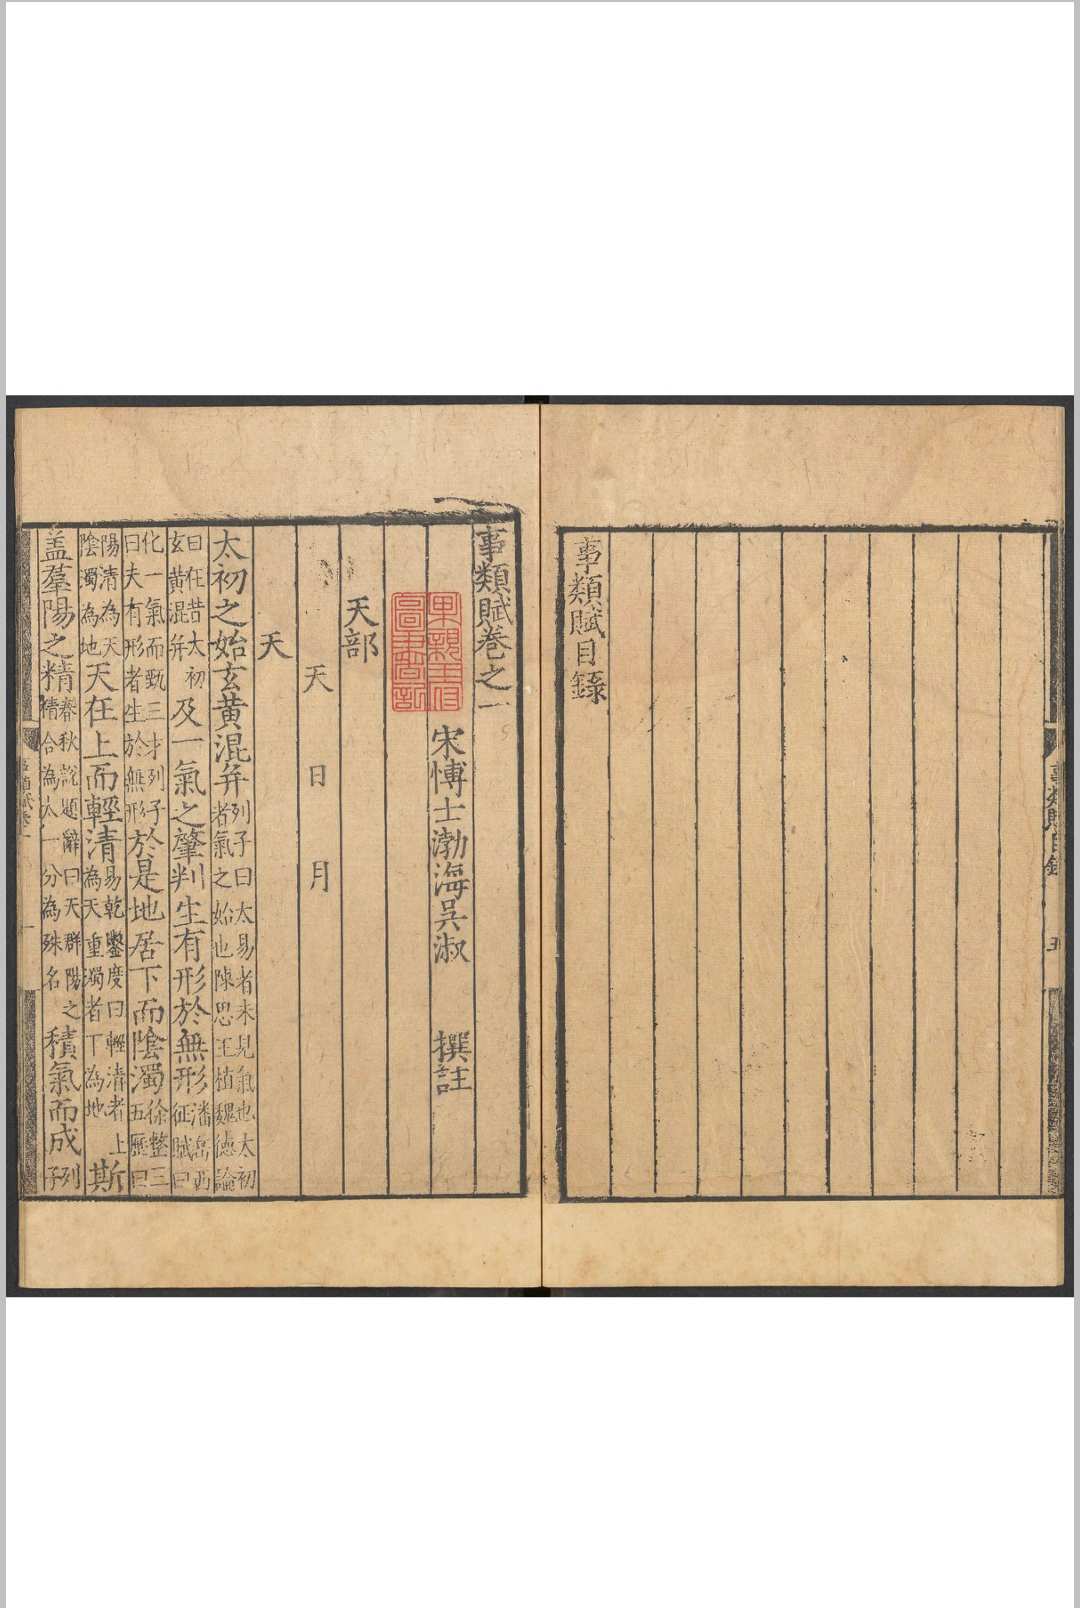 事類賦目録
事類賦目録 五
事類賦卷之一
宋博士渤海吳淑 撰註
天部
天 日 月
天
太初之始玄黄混并列子曰太易者未見氣也太初者氣之始也陳思王植魏德論
曰在昔太初玄黄混并及一氣之肇判生有形於無形潘岳西征賦曰
化一氣而甄三才列子曰夫有形者生於無形於是地居下而陰濁徐整三五曆曰
陽清為天陰濁為地天在上而輕清易乾鑿度曰輕清者上為天重濁者下為地斯
盖羣陽之精春秋說題辭曰天群陽之精合為太一分為殊名積氣而成列子